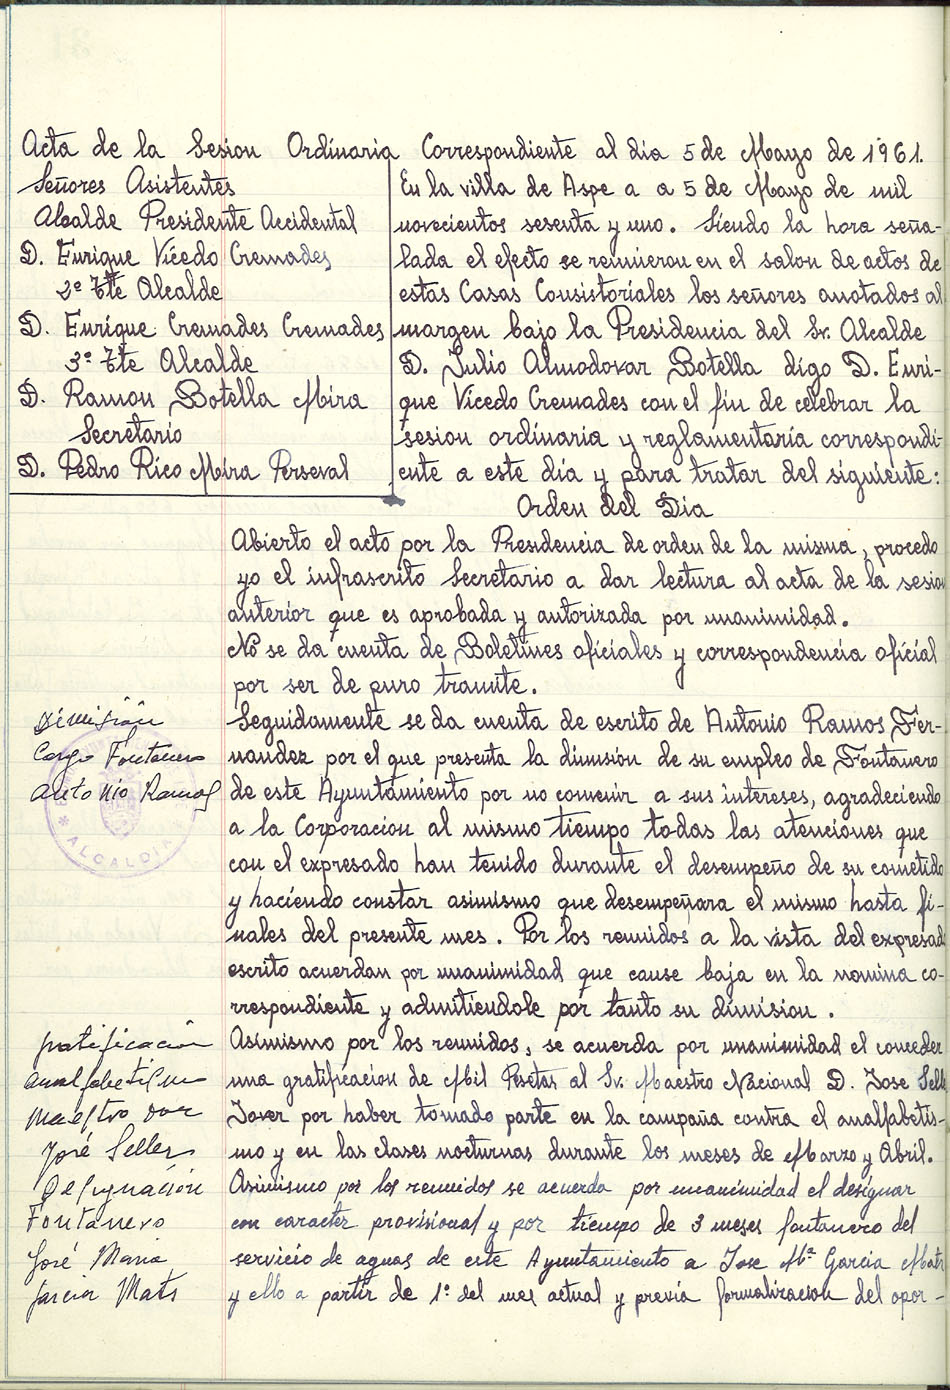 Acta de la Sesion Ordinaria Correspondiente al dia 5 de Mayo de 1961.
Señores Asistentes
Alcalde Presidente Accidental
D. Enrique Vicedo Cremades
2º Tte Alcalde
D. Enrique Cremades Cremades
3º Tte Alcalde
D. Ramon Botella Mira
Secretario
D. Pedro Rico Mira Perseval
En la villa de Aspe a a 5 de Mayo de mil
novecientos sesenta y uno. Siendo la hora seña-
lada el efecto se reunieron en el salon de actos de
estas Casas Consistoriales los señores anotados al
margen bajo la Presidencia del Sr. Alcalde
D. Julio Almodovar Botella digo D. Enri-
que Vicedo Cremades con el fin de celebrar la
sesion ordinaria y reglamentaria correspondi-
ente a este dia y para tratar del siguiente:
Orden del Dia
Abierto el acto por la Presidencia de orden de la misma, procedo
yo el infrascrito Secretario a dar lectura al acta de la sesion
anterior que es aprobada y autorizada por unanimidad.
No se da cuenta de Boletines oficiales y correspondencia oficial
por ser de puro tramite.
Dimisión
Cargo Fontanero
Antonio Ramos
ALCALDIA
Seguidamente se da cuenta de escrito de Antonio Ramos Fer-
nandez por el que presenta la dimision de su empleo de Fontanero
de este Ayuntamiento por no convenir a sus intereses, agradeciendo
a la Corporacion al mismo tiempo todas las atenciones que
con el expresado han tenido durante el desempeño de su cometido
y haciendo constar asimismo que desempeñara el mismo hasta fi-
nales del presente mes. Por los reunidos a la vista del expresad
escrito acuerdan por unanimidad que cause baja en la nomina co-
rrespondiente y admitiendole por tanto su dimision.
gratificación
analfabetismo
Maestro don
José Seller
Asimismo por los reunidos, se acuerda por unanimidad el conceder
una gratificacion de Mil Pesetas al Sr. Maestro Nacional D. Jose Sell
Jover por haber tomado parte en la campaña contra el analfabetis-
mo y en las clases nocturnas durante los meses de Marzo y Abril.
Designación
Fontanero
José Maria
Garcia Mats
Asimismo por los reunidos se acuerda por unanimidad el designar
con caracter provisional y por tiempo de 3 meses fontanero del
servicio de aguas de este Ayuntamiento a Jose Mª Garcia Mats
y ello a partir de 1º del mes actual y previa formalizacion del opor-